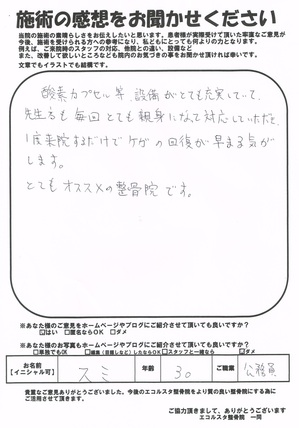 施術の感想をお聞かせください
当院の施術の素晴らしさをお伝えしたいと思います。患者様が実際受けて頂いた率直なご意見が
今後、施術を受けられる方への参考になり、私どもにとっても何よりの力となります。
例えば、ご来院時のスタッフの対応、他院との違い、設備など
また、改善して欲しいところなども院内のお気づきの事をお聞かせ頂ければ幸いです。
文章でもイラストでも結構です。
酸素カプセル等、設備がとても充実していて、
先生方も毎回とても親身になって対応していただき
1度来院するだけでケガの回復が早まる気が
します。
とてもオススメの整骨院です。
※あなた様のご意見をホームページやブログにご紹介させて頂いても良いですか?
はい □匿名ならOK □ダメ
※あなた様のお写真もホームページやブログにご紹介させて頂いても良いですか?
□単独でもOK □編集(目隠しなど)したならOK □スタッフと一緒なら ダメ
お名前
【イニシャル可】 スミ 年齢 30 ご職業 公務員
貴重なご意見ありがとうございました。今後のエコルスタ整骨院をより質の良い整骨院にする為に
ご活用させて頂きます。
ご協力頂きまして、ありがとうございます
エコルスタ整骨院 一同